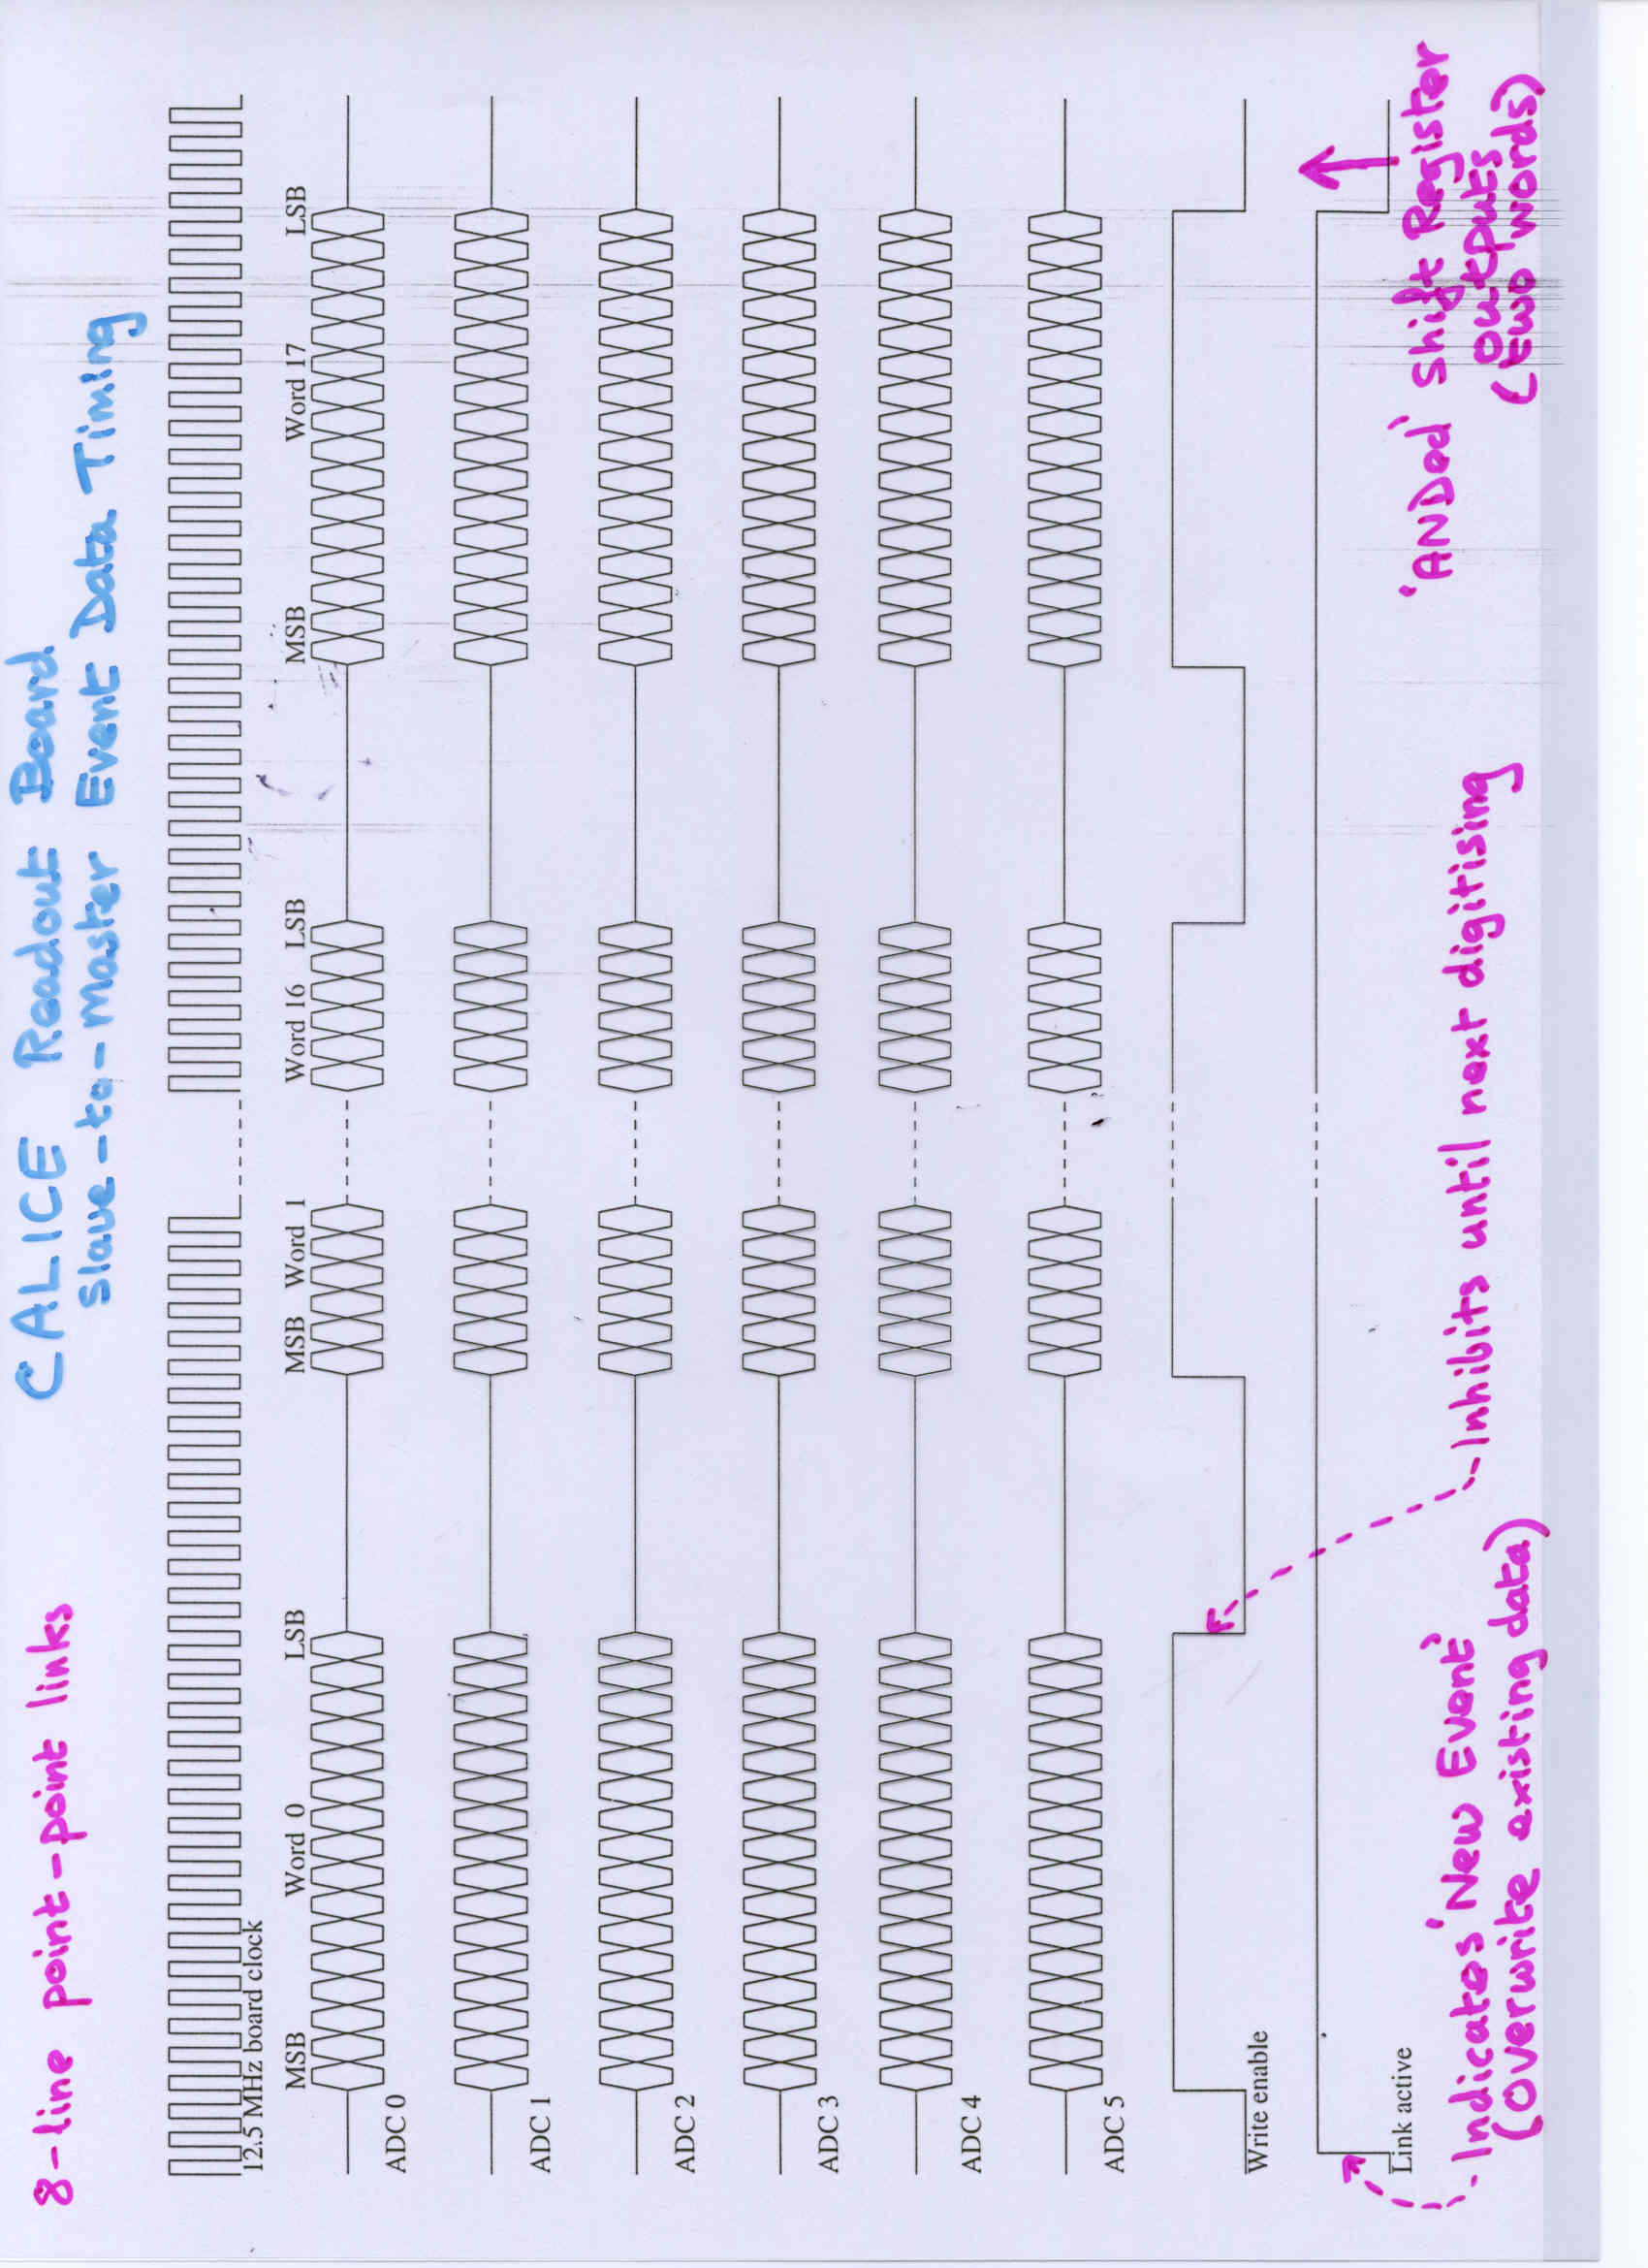 CALICE Readout Board
8-line point-point links
Slave-to-Master Event Data Timing
12.5 MHz board clock
MSB Word 0 LSB MSB Word 1 Word 16 LSB MSB Word 17 LSB
ADC 0
ADC 1
ADC 2
ADC 3
ADC 4
ADC 5
Write enable
Link active
Indicates 'New Event'
(Overwrite existing data)
Inhibits until next digitising
'ANDed' Shift Register
Outputs
(two words)